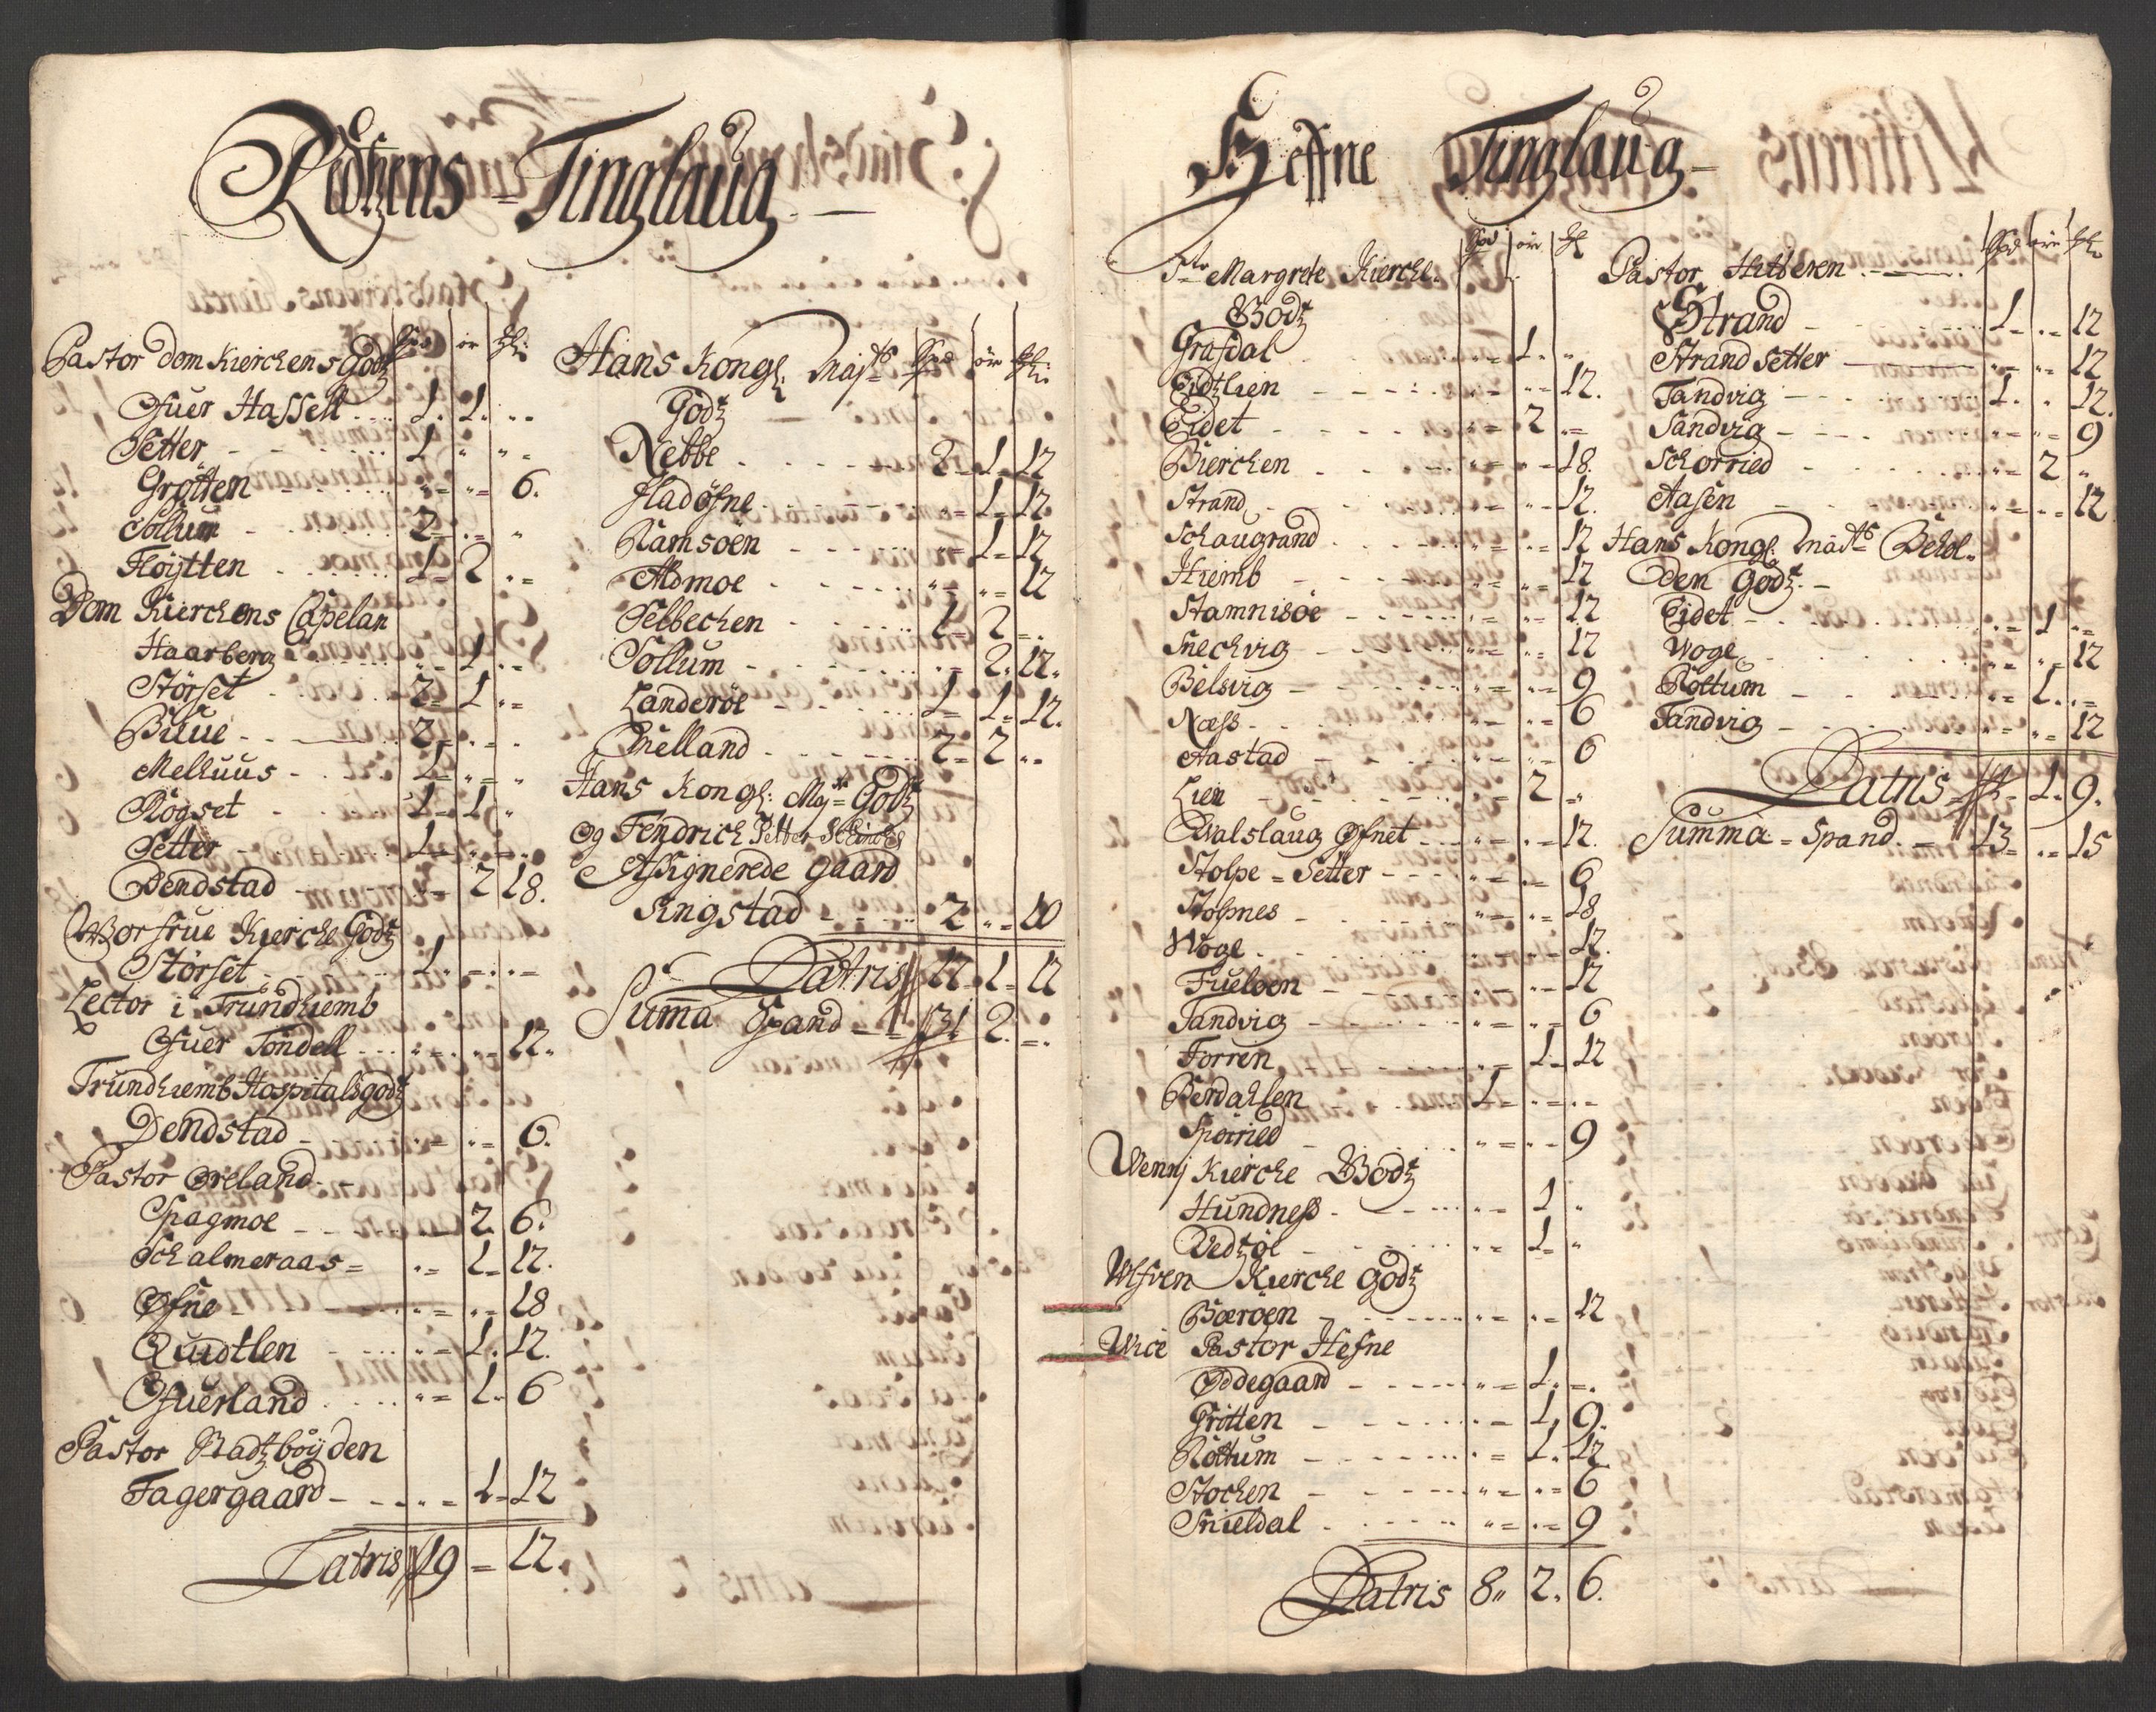 Rißens Tinglaug
Pastor Dom Kierchens Godtz Spd ör Mli
Ofuer Hassell 1. 1. "
Setter 1 " "
Grötten " " 6.
Sollum 2 " "
Höÿtten 1 2 "
Dom Kierchens Capelan
Haarberg " 1 "
Störset 2 1 "
Buue 2 " "
Melhuus 1 " "
Rögset 1 1 "
Setter 1 " "
Dendstad " 2 18.
Worfrue Kierche Godtz
Störset 1. " "
Lector i Trundhiemb
Ofuer Tondell " " 12.
Trundhiembs Hospitals godtz
Dendstad " " 6.
Pastor Øreland
Spagmoe 2. 6.
Schalmeraas " 1 12.
Øfne " " 18
Quidtlen " 1. 12.
Ofuerland " 1. 6
Pastor Stadtzböÿden
Fagergaard " 1 12
Latris 19 = 12.
Hans Kongl: Maÿts Spd ör Mli
Godtz
Nebbe 2 1 12
Hadöfne " 1 12
Ramsöen " 1 12
Aldmoe " " 12
Selbechen 1 2 "
Sollum " 2. 12.
Landeröe 1 1 12.
Qvelland 2 2 "
Hans Kongl: May:tz Godtz
og Fendrich Petter
Assignerede gaard
Ringstad 2 " 20
Latris 12 1 12
Summa Spand 31 2. "
Heffne Tinglaug
Ste Margrete Kierche Spd ör Mli
Godtz
Grafdal " 1. "
Eidtzlien " " 12.
Eidet " 2 "
Bierchen " " 18.
Strand " " 12.
Schaugrand " " 12
Hiemb " " 12
Stamnisöe " " 12
Snechvig " " 12
Belsvig " " 9
Næss " " 6
Aastad " " 6
Lien " 2 "
Walslaug Øfnet " " 12.
Stolpe-Setter " " 6
Stolpnes " " 18
Woge " " 12.
Fueløen " " 12
Tandvig " " 6
Forren " 1. 12
Berdahlen 1 " "
Sporried " " 9
Wennj Kierche Godtz
Hundness " 1 "
Vedtzöe " 1 "
Ulfven Kierche godtz
Bæröen " " 12
Wice Pastor Hefne
Oddegaard " 1. "
Gritten " 1, 9.
Rottum " 1. 12
Stochen " " 6
Snieldal " " 9
Latris 8 2. 6.
Pastor Hitteren Spd ör Mli
Strand 1 " 12
Strand Setter " " 12
Tandvig 1. " 12.
Sandvig " " 9
Schorried " 2 "
Aasen " " 12
Hans Kongl: Maÿts Behol-
den Godtz
Eidet " 1 "
Woge " " 12
Rottum " 1. "
Tandvig " " 12
Latris 4 1. 9.
Summa Spand 13 " 15